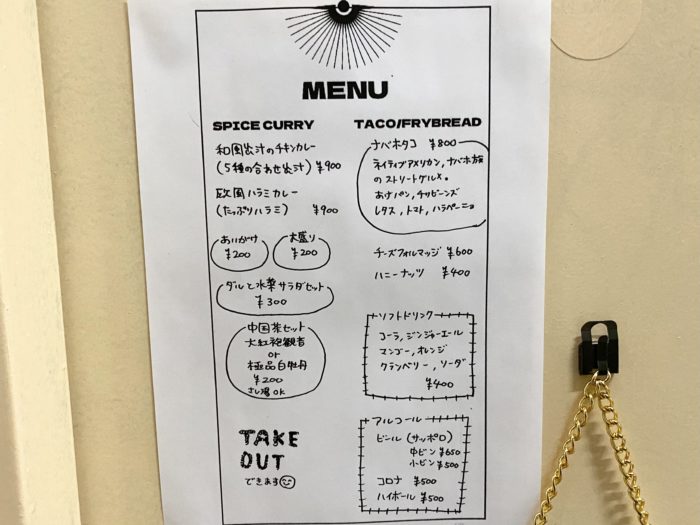 MENU
SPICE CURRY
和風出汁のチキンカレー
(5種の合わせ出汁) ¥900
欧風ハラミカレー
(たっぷりハラミ) ¥900
あいがけ
¥200
大盛り
¥200
ダルと水菜サラダセット
¥300
中国茶セット
大紅袍観音
or
極品白牡丹
¥200
さし湯OK
TAKE
OUT
できます
TACO/FRYBREAD
ナバホタコ ¥800
ネイティブアメリカン,ナバホ族
のストリートグルメ。
あげパン,チリビーンズ
レタス,トマト,ハラペーニョ
チーズフォルマッジ ¥600
ハニーナッツ ¥400
ソフトドリンク
コーラ,ジンジャーエール
マンゴー,オレンジ
クランベリー,ソーダ
¥400
アルコール
ビール(サッポロ)
中ビン ¥650
小ビン ¥500
コロナ ¥500
ハイボール ¥500